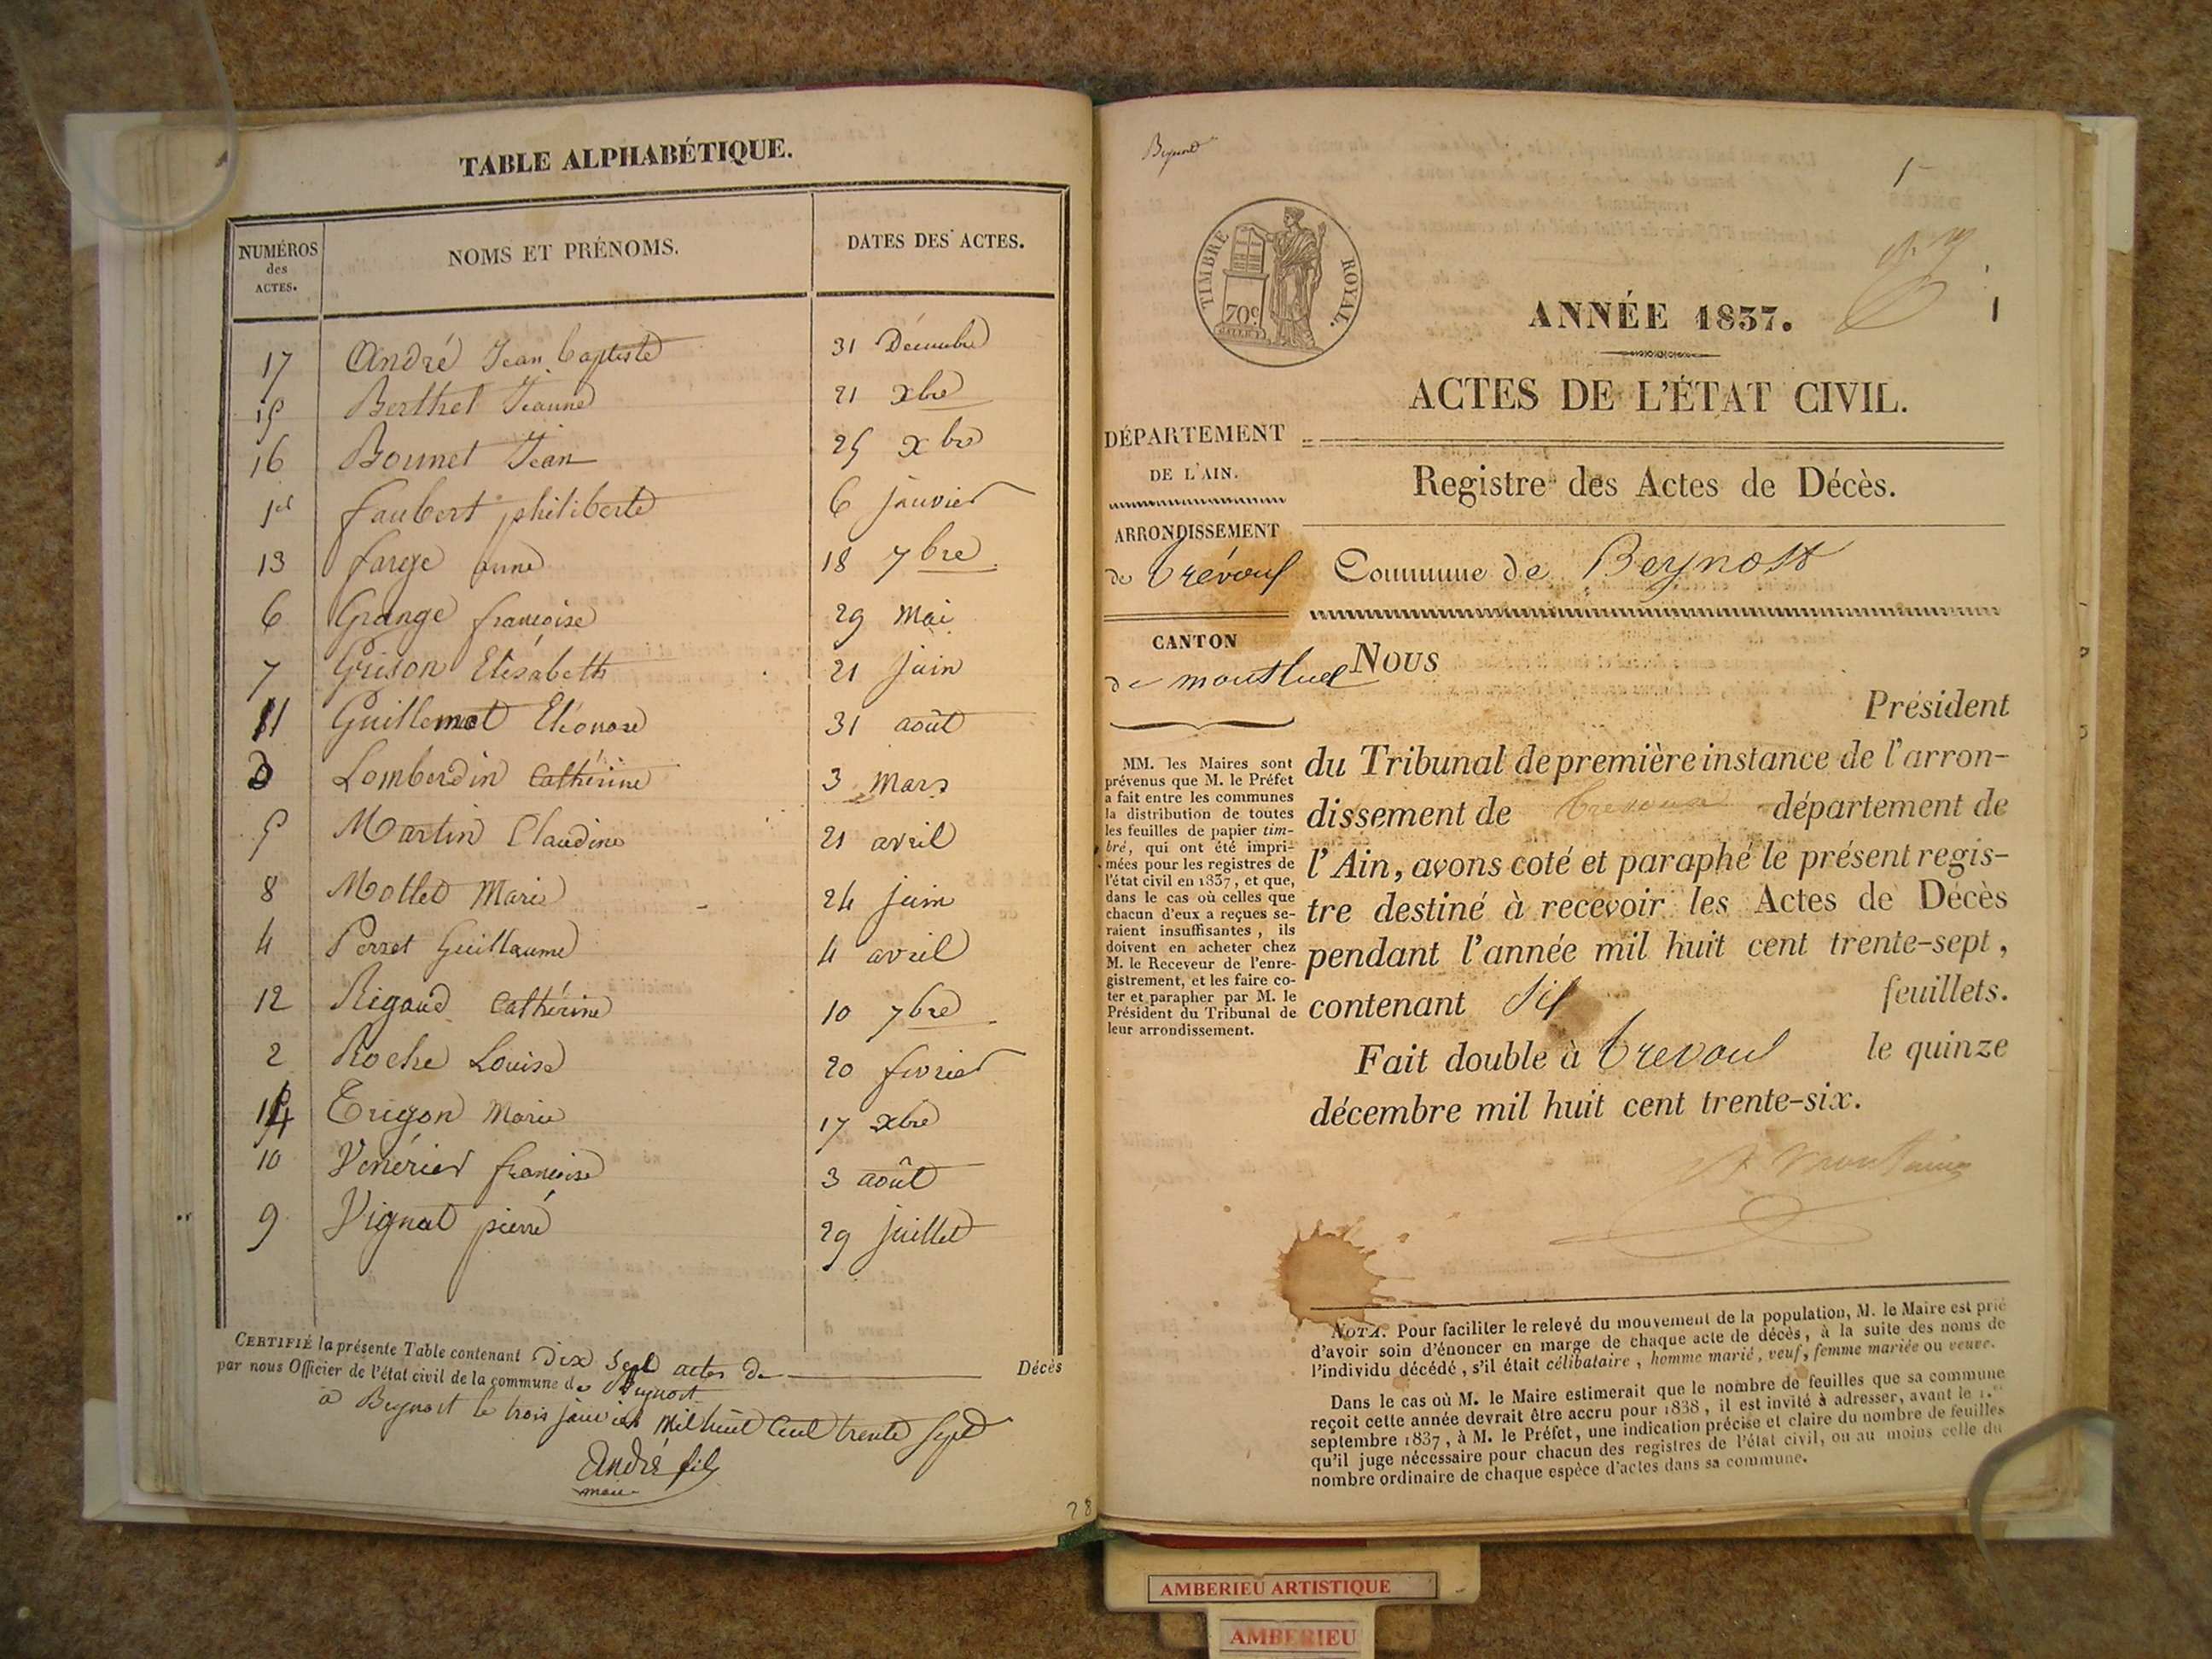 TABLE ALPHABÉTIQUE.
NUMÉROS des ACTES. NOMS ET PRÉNOMS. DATES DES ACTES.
17 André Jean baptiste 31 Décembre
15 Berthet Jeanne 21 xbre
16 Bonnet Jean 25 xbre
1er faubert philiberte 6 janvier
13 farge anne 18 7bre
6 Grange françoise 29 Mai
7 Grison Elisabeth 21 juin
11 Guillemot Eléonore 31 août
3 Lombardin Cathérine 3 Mars
5 Martin Claudine 21 avril
8 Mollet Marie 24 juin
4 Perret Guillaume 4 avril
12 Rigaud Cathérine 10 7bre
2 Roche Louise 20 fevrier
14 Trigon Marie 17 xbre
10 Venérier françoise 3 août
9 Vignat pierre 29 juillet
CERTIFIÉ la présente Table contenant Dix Sept actes de Décès
par nous Officier de l'état civil de la commune de Beynost
a Beynost le trois janvier Mil huit Cent trente Sept
André fils
maire
28
Beynost
1
TIMBRE ROYAL.
70c
ANNÉE 1837.
1
ACTES DE L'ÉTAT CIVIL.
DÉPARTEMENT
DE L'AIN.
Registre des Actes de Décès.
ARRONDISSEMENT
de Trévoux
Commune de Beynost
CANTON
de montluel
MM. les Maires sont
prévenus que M. le Préfet
a fait entre les communes
la distribution de toutes
les feuilles de papier tim-
bré, qui ont été impri-
mées pour les registres de
l'état civil en 1837, et que,
dans le cas où celles que
chacun d'eux a reçues se-
raient insuffisantes, ils
doivent en acheter chez
M. le Receveur de l'enre-
gistrement, et les faire co-
ter et parapher par M. le
Président du Tribunal de
leur arrondissement.
NOUS
Président
du Tribunal de première instance de l'arron-
dissement de Trevoux département de
l'Ain, avons coté et paraphé le présent regis-
tre destiné à recevoir les Actes de Décès
pendant l'année mil huit cent trente-sept,
contenant Six feuillets.
Fait double à Trevoux le quinze
décembre mil huit cent trente-six.
NOTA. Pour faciliter le relevé du mouvement de la population, M. le Maire est prié
d'avoir soin d'énoncer en marge de chaque acte de décès, à la suite des noms de
l'individu décédé, s'il était célibataire, homme marié, veuf, femme mariée ou veuve.
Dans le cas où M. le Maire estimerait que le nombre de feuilles que sa commune
reçoit cette année devrait être accru pour 1838, il est invité à adresser, avant le 1.er
septembre 1837, à M. le Préfet, une indication précise et claire du nombre de feuilles
qu'il juge nécessaire pour chacun des registres de l'état civil, ou au moins celle du
nombre ordinaire de chaque espèce d'actes dans sa commune.
AMBERIEU ARTISTIQUE
AMBERIEU